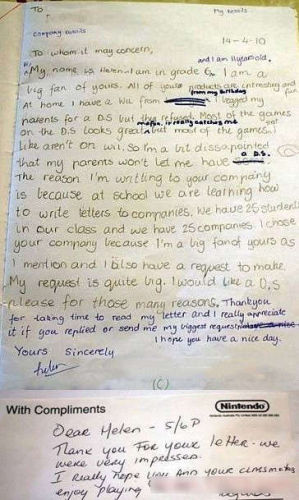 To
My Details
Company Details
14-4-10
To whom it may concern,
and I am 11 years old.
My name is Helen. I am in grade 6. I am a
big fan of yours. All of your products are intresting and fun
from my birthday
At home I have a Wii from I begged my
parents for a DS but they refused. Most of the games
is really catching me
on the DS looks great but most of the games I
like aren't on wii. So I'm a bit dissapointed
that my parents won't let me have a D.S.
The reason I'm writting to your company
is because at school we are learning how
to write letters to companies. We have 25 students
in our class and we have 25 companies. I chose
your company because I'm a big fan of yours as
I mention and I also have a request to make.
My request is quite big. I would like a D,S
please for those many reasons. Thankyou
for taking time to read my letter and I really appreciate
it if you replied or send me my biggest request
I hope you have a nice day.
Yours Sincerely
Helen
(C)
With Compliments
Nintendo
Dear Helen - 5/6P
Thank you For your letter - we
were very impressed.
I really hope you And your classmates
enjoy playing